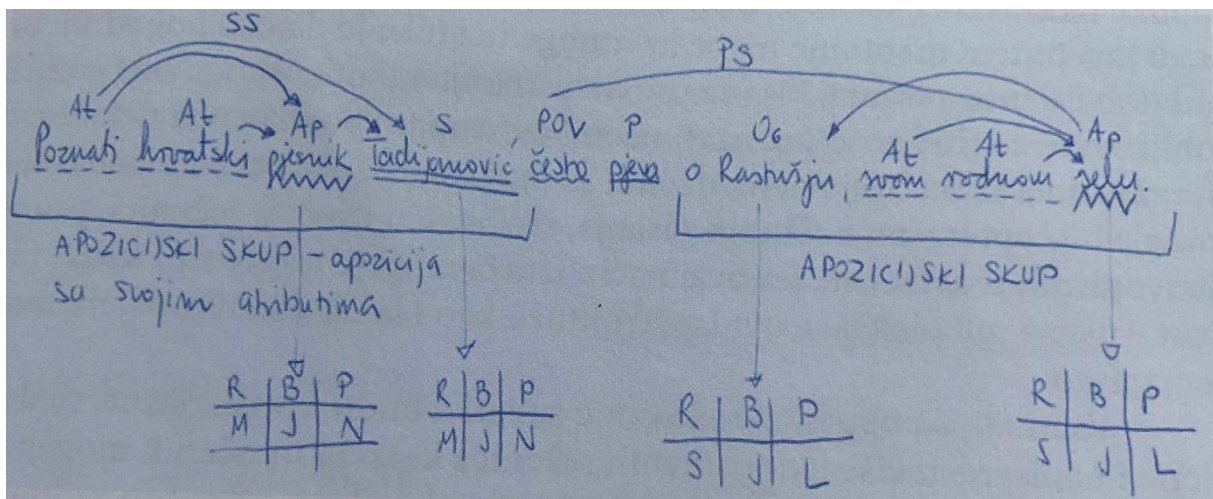 SS PS
At At Ap S POV P O6 At At Ap
Poznati hrvatski pjesnik Tadijanović, često pjeva o Rastušju, svom rodnom selu.
APOZICIJSKI SKUP – apozicija
sa svojim atributima
APOZICIJSKI SKUP
R B P
M J N
R B P
M J N
R B P
S J L
R B P
S J L